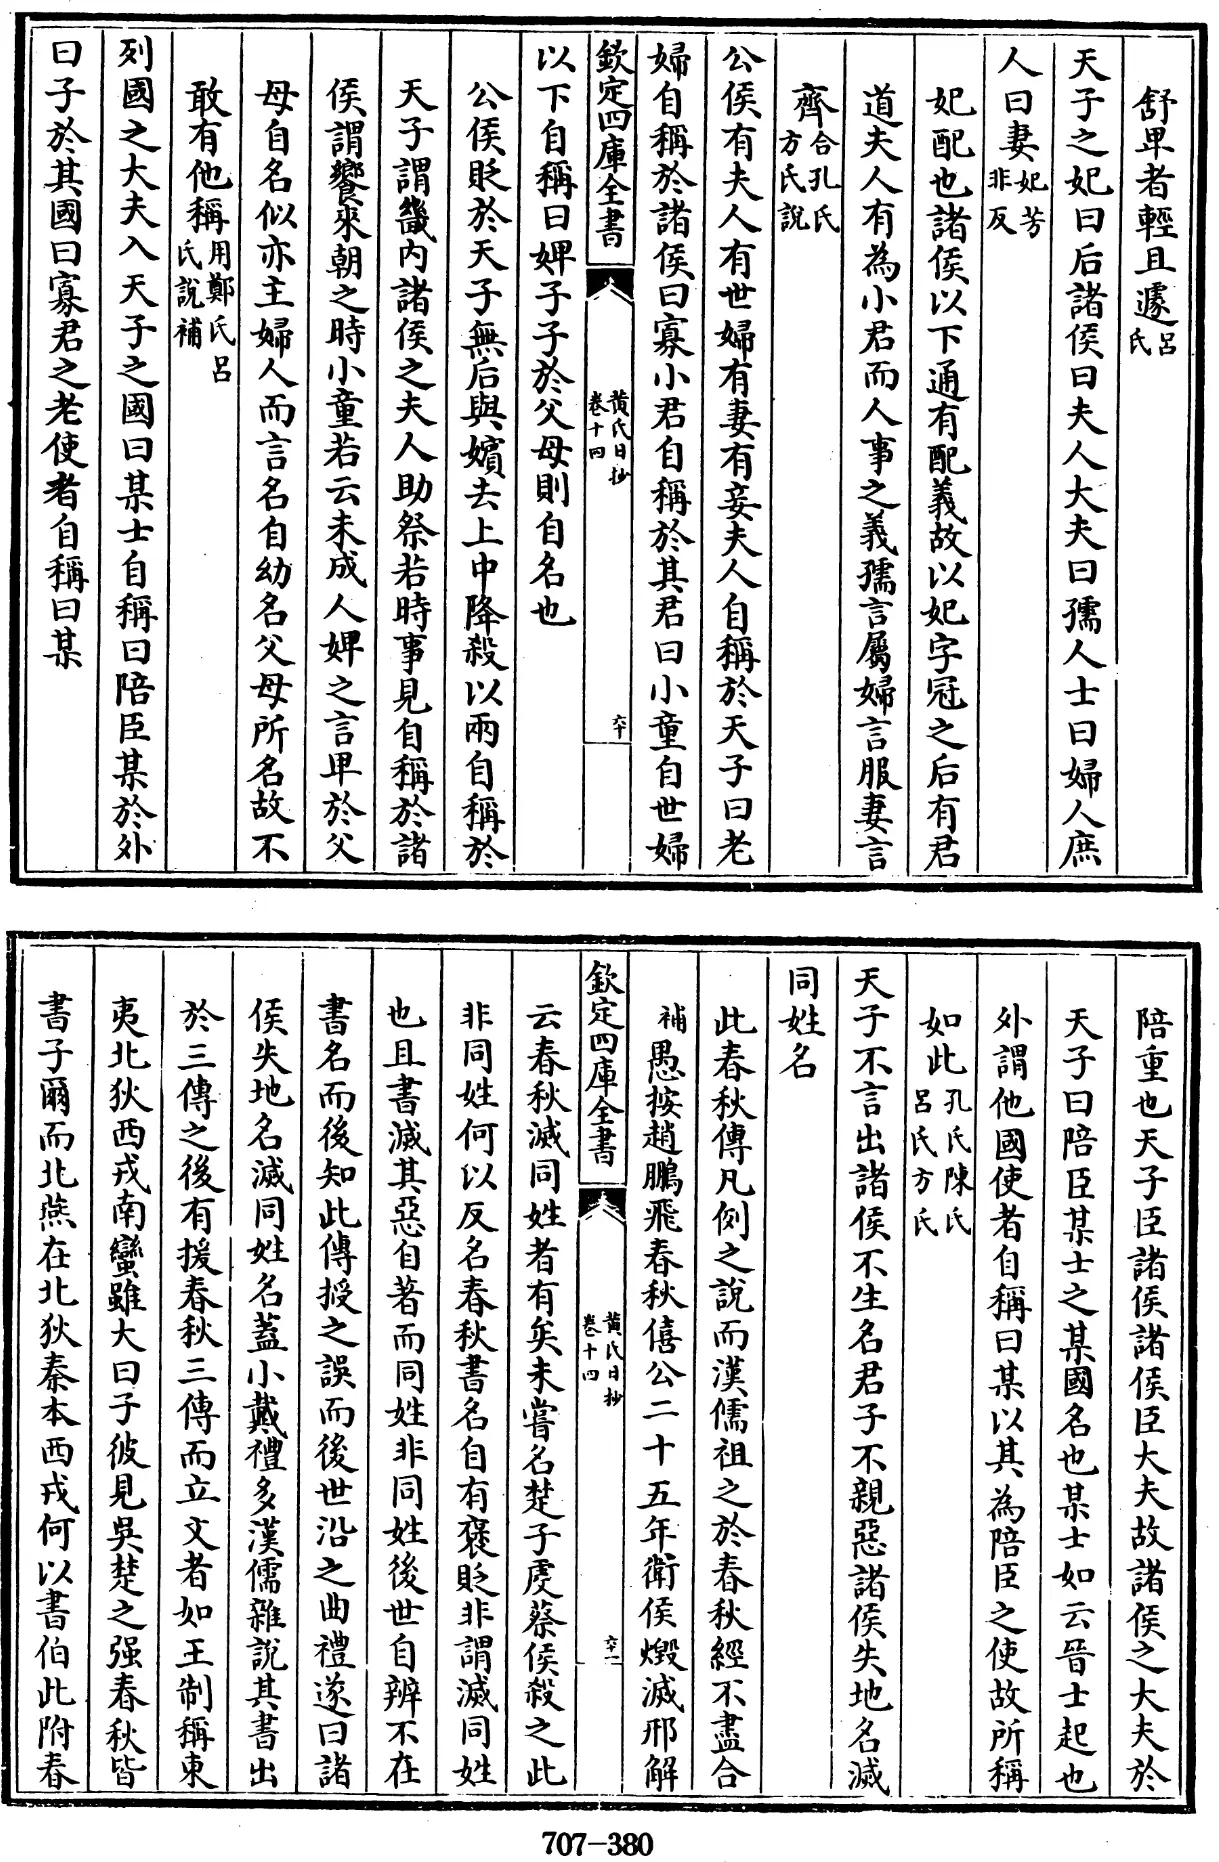 舒卑者輕且遽呂氏
天子之妃曰后諸侯曰夫人大夫曰孺人士曰婦人庶
人曰妻妃芳非反
妃配也諸侯以下通有配義故以妃字冠之后有君
道夫人有為小君而人事之義孺言屬婦言服妻言
齊合孔氏方氏說
公侯有夫人有世婦有妻有妾夫人自稱於天子曰老
婦自稱於諸侯曰寡小君自稱於其君曰小童自世婦
欽定四庫全書 黃氏日抄卷十四 六十
以下自稱曰婢子子於父母則自名也
公侯貶於天子無后與嬪去上中降殺以兩自稱於
天子謂畿內諸侯之夫人助祭若時事見自稱於諸
侯謂饗來朝之時小童若云未成人婢之言卑於父
母自名似亦主婦人而言名自幼名父母所名故不
敢有他稱用鄭氏呂氏說補
列國之大夫入天子之國曰某士自稱曰陪臣某於外
曰子於其國曰寡君之老使者自稱曰某
陪重也天子臣諸侯諸侯臣大夫故諸侯之大夫於
天子曰陪臣某士之某國名也某士如云晉士起也
外謂他國使者自稱曰某以其為陪臣之使故所稱
如此孔氏陳氏呂氏方氏
天子不言出諸侯不生名君子不親惡諸侯失地名滅
同姓名
此春秋傳凡例之說而漢儒祖之於春秋經不盡合
補愚按趙鵬飛春秋僖公二十五年衛侯燬滅邢解
欽定四庫全書 黃氏日抄卷十四 六十一
云春秋滅同姓者有矣未嘗名楚子虔蔡侯殺之此
非同姓何以反名春秋書名自有褒貶非謂滅同姓
也且書滅其惡自著而同姓非同姓後世自辨不在
書名而後知此傳授之誤而後世沿之曲禮遂曰諸
侯失地名滅同姓名蓋小戴禮多漢儒雜說其書出
於三傳之後有援春秋三傳而立文者如王制稱東
夷北狄西戎南蠻雖大曰子彼見吳楚之强春秋皆
書子爾而北燕在北狄秦本西戎何以書伯此附春
707-380